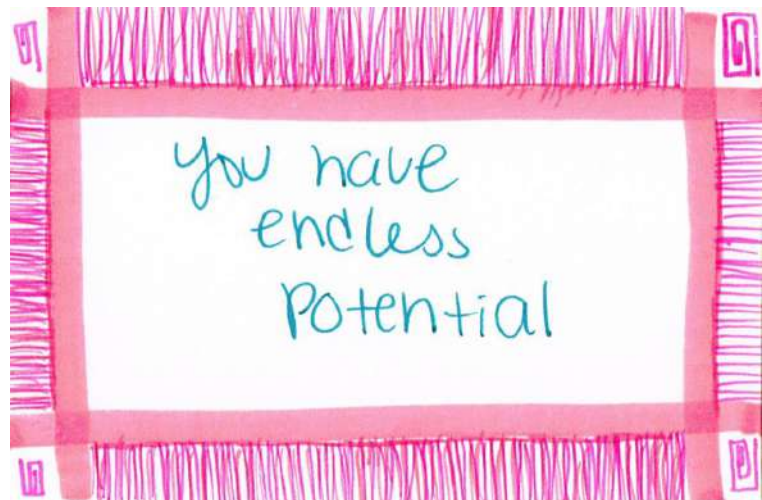 you have
endless
potential